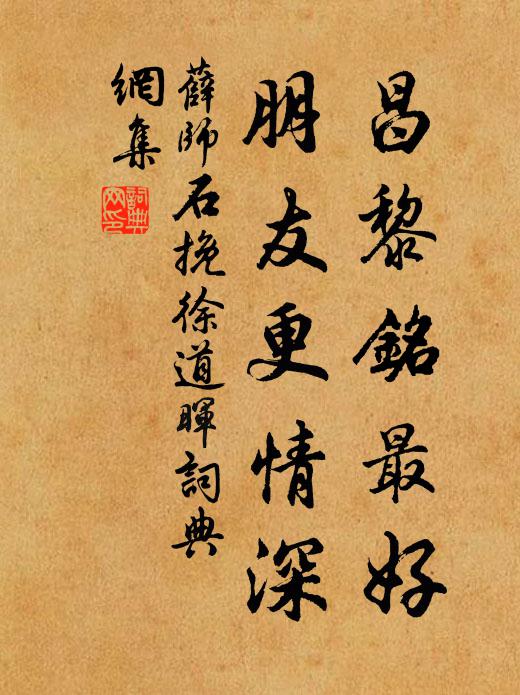 昌黎銘最好
朋友更情深
薛師石挽徐道暉詞典
網集
詞典網印